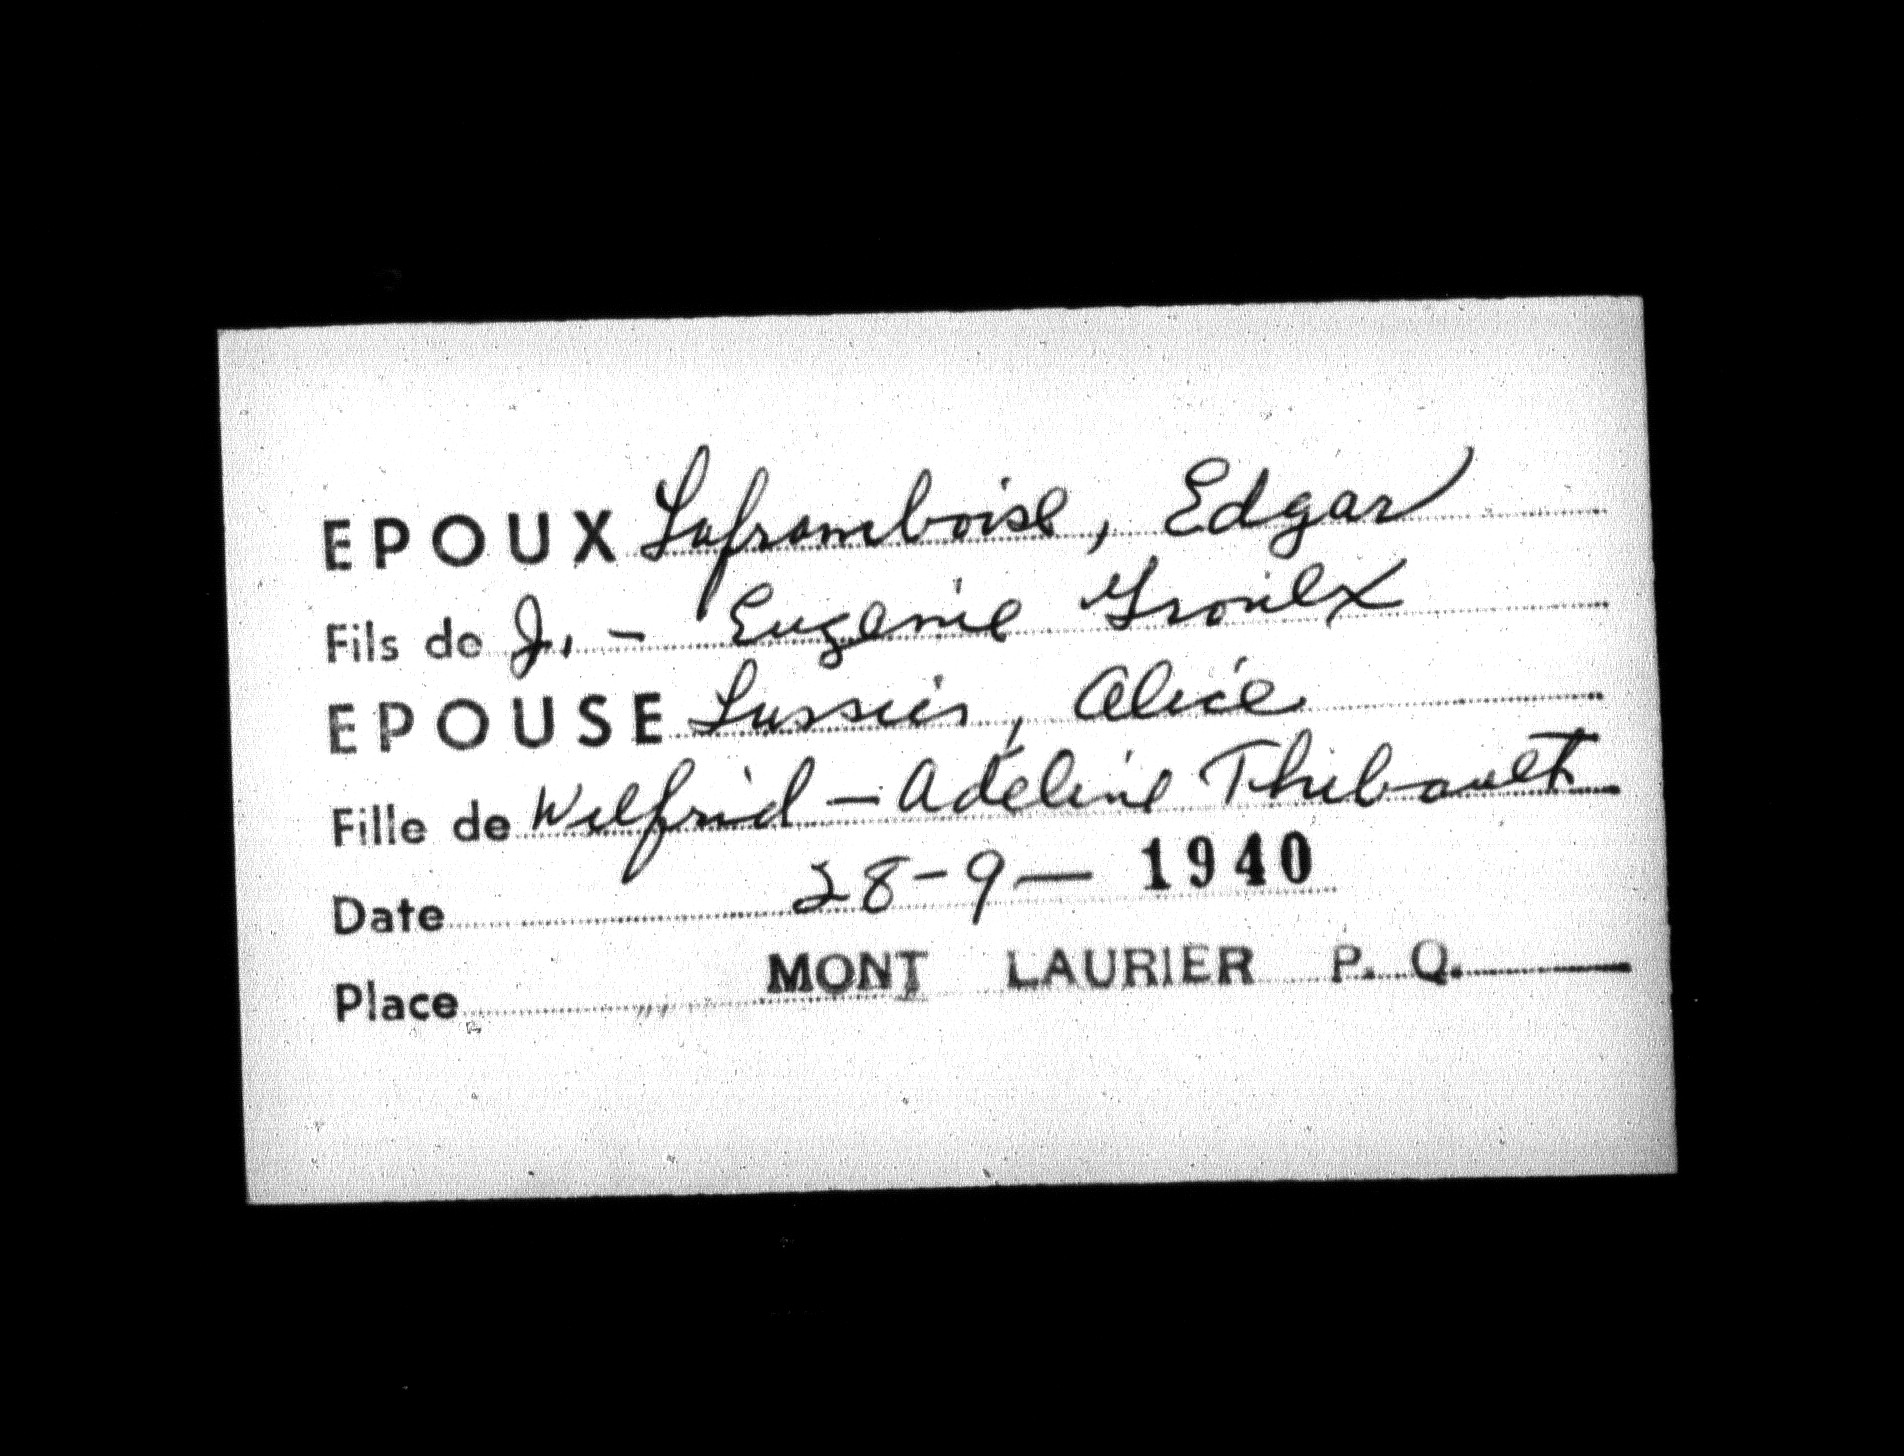 EPOUX Laframboise, Edgar
Fils de J. - Eugenie Groulx
EPOUSE Lussier, Alice
Fille de Wilfrid - Adeline Thibault
Date 28-9- 1940
Place MONT LAURIER P. Q.